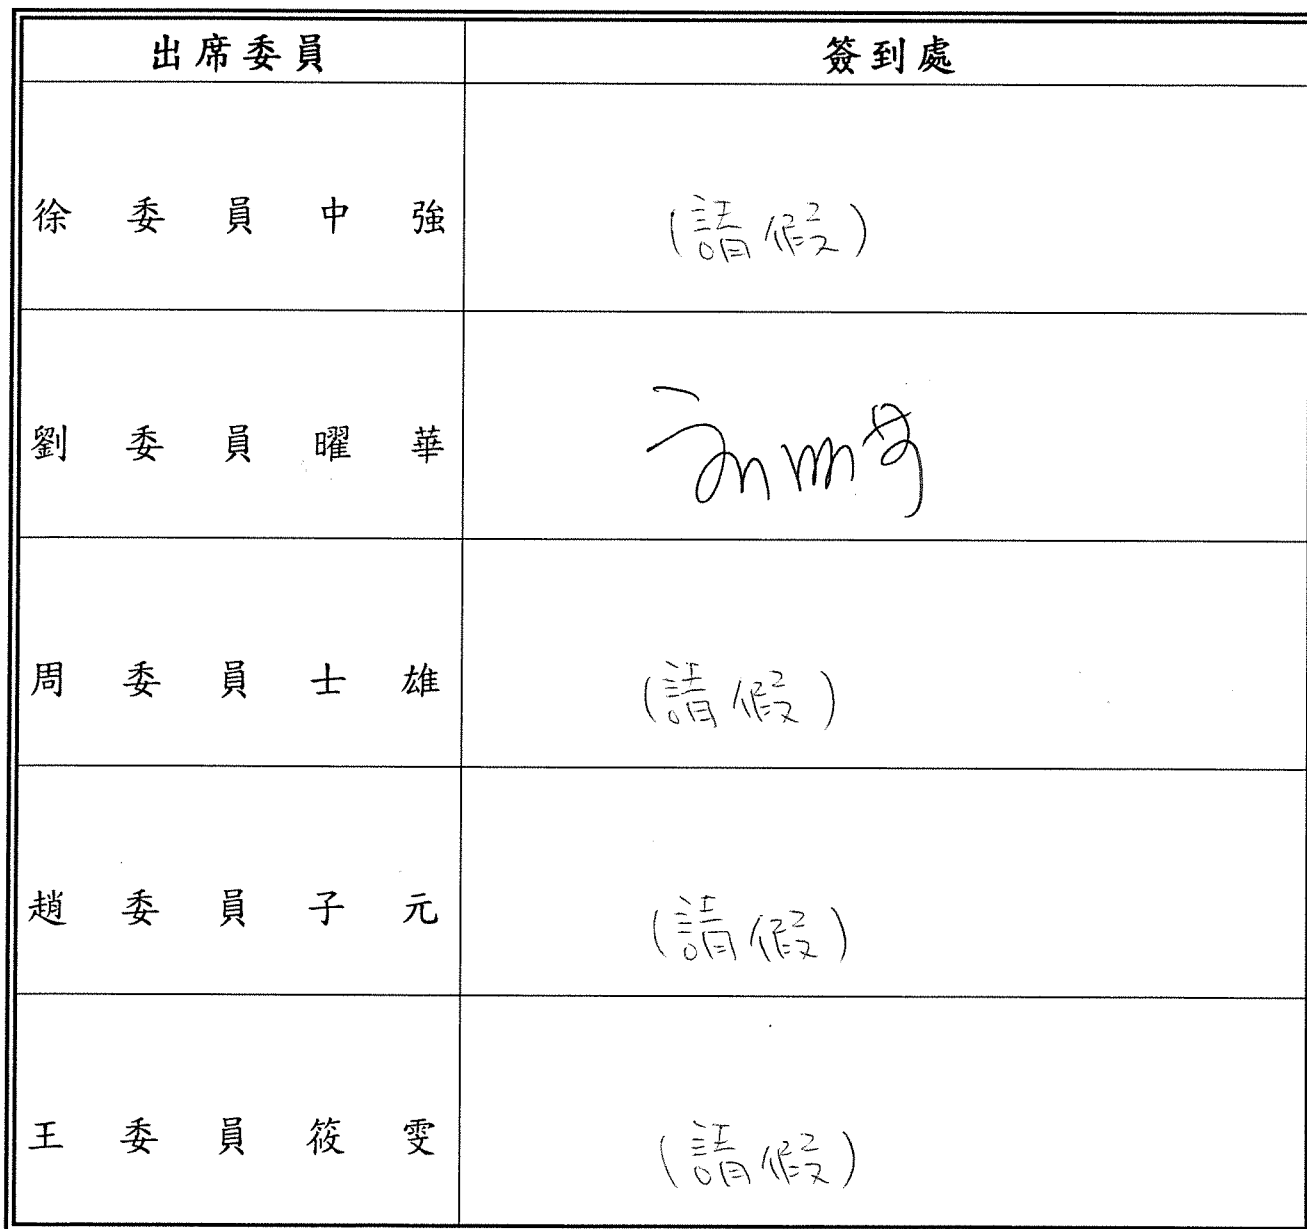 出席委員 簽到處
徐委員中強 (請假)
劉委員曜華
周委員士雄 (請假)
趙委員子元 (請假)
王委員筱雯 (請假)